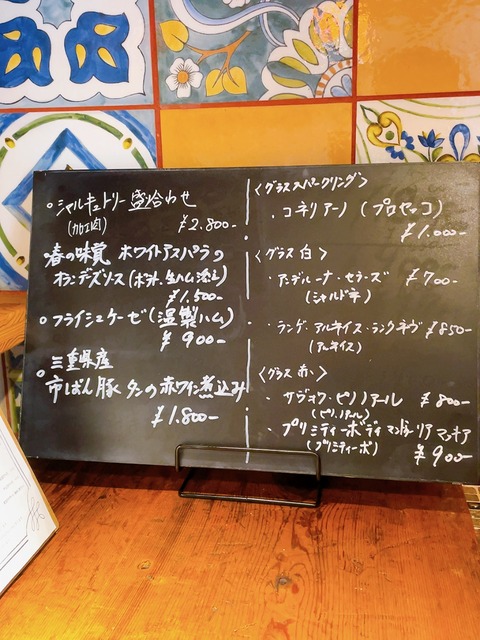 シャルキュトリー 盛合わせ
(加工肉)
¥2.800-
春の味覚 ホワイトアスパラの
オランデーズソース(ポーチ、生ハム添え)
¥1.500-
フライシュケーゼ(湿製ハム)
¥900-
三重県産
市ばん豚 タンの赤ワイン煮込み
¥1.800-
〈グラススパークリング〉
・コネリアーノ (プロセッコ)
¥1.000-
〈グラス白〉
・アンデルーナ・セラーズ ¥700-
(シャルドネ)
・ラング・アルネイス・ランクネヴ ¥850-
(アルネイス)
〈グラス赤〉
・サヴォワ・ピノノアール ¥800-
(ピノノアール)
・プリミティーボ ディ マンドゥーリア マンナア
(プリミティーボ)
¥900-